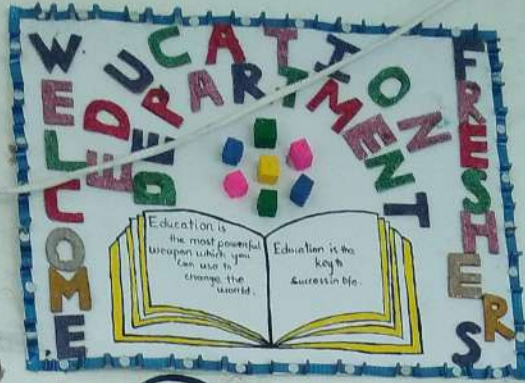 WELCOME
EDUCATION
DEPARTMENT
FRESHERS
Education is
the most powerful
weapon which you
can use to
change the
world.
Education is the
key to
success in life.